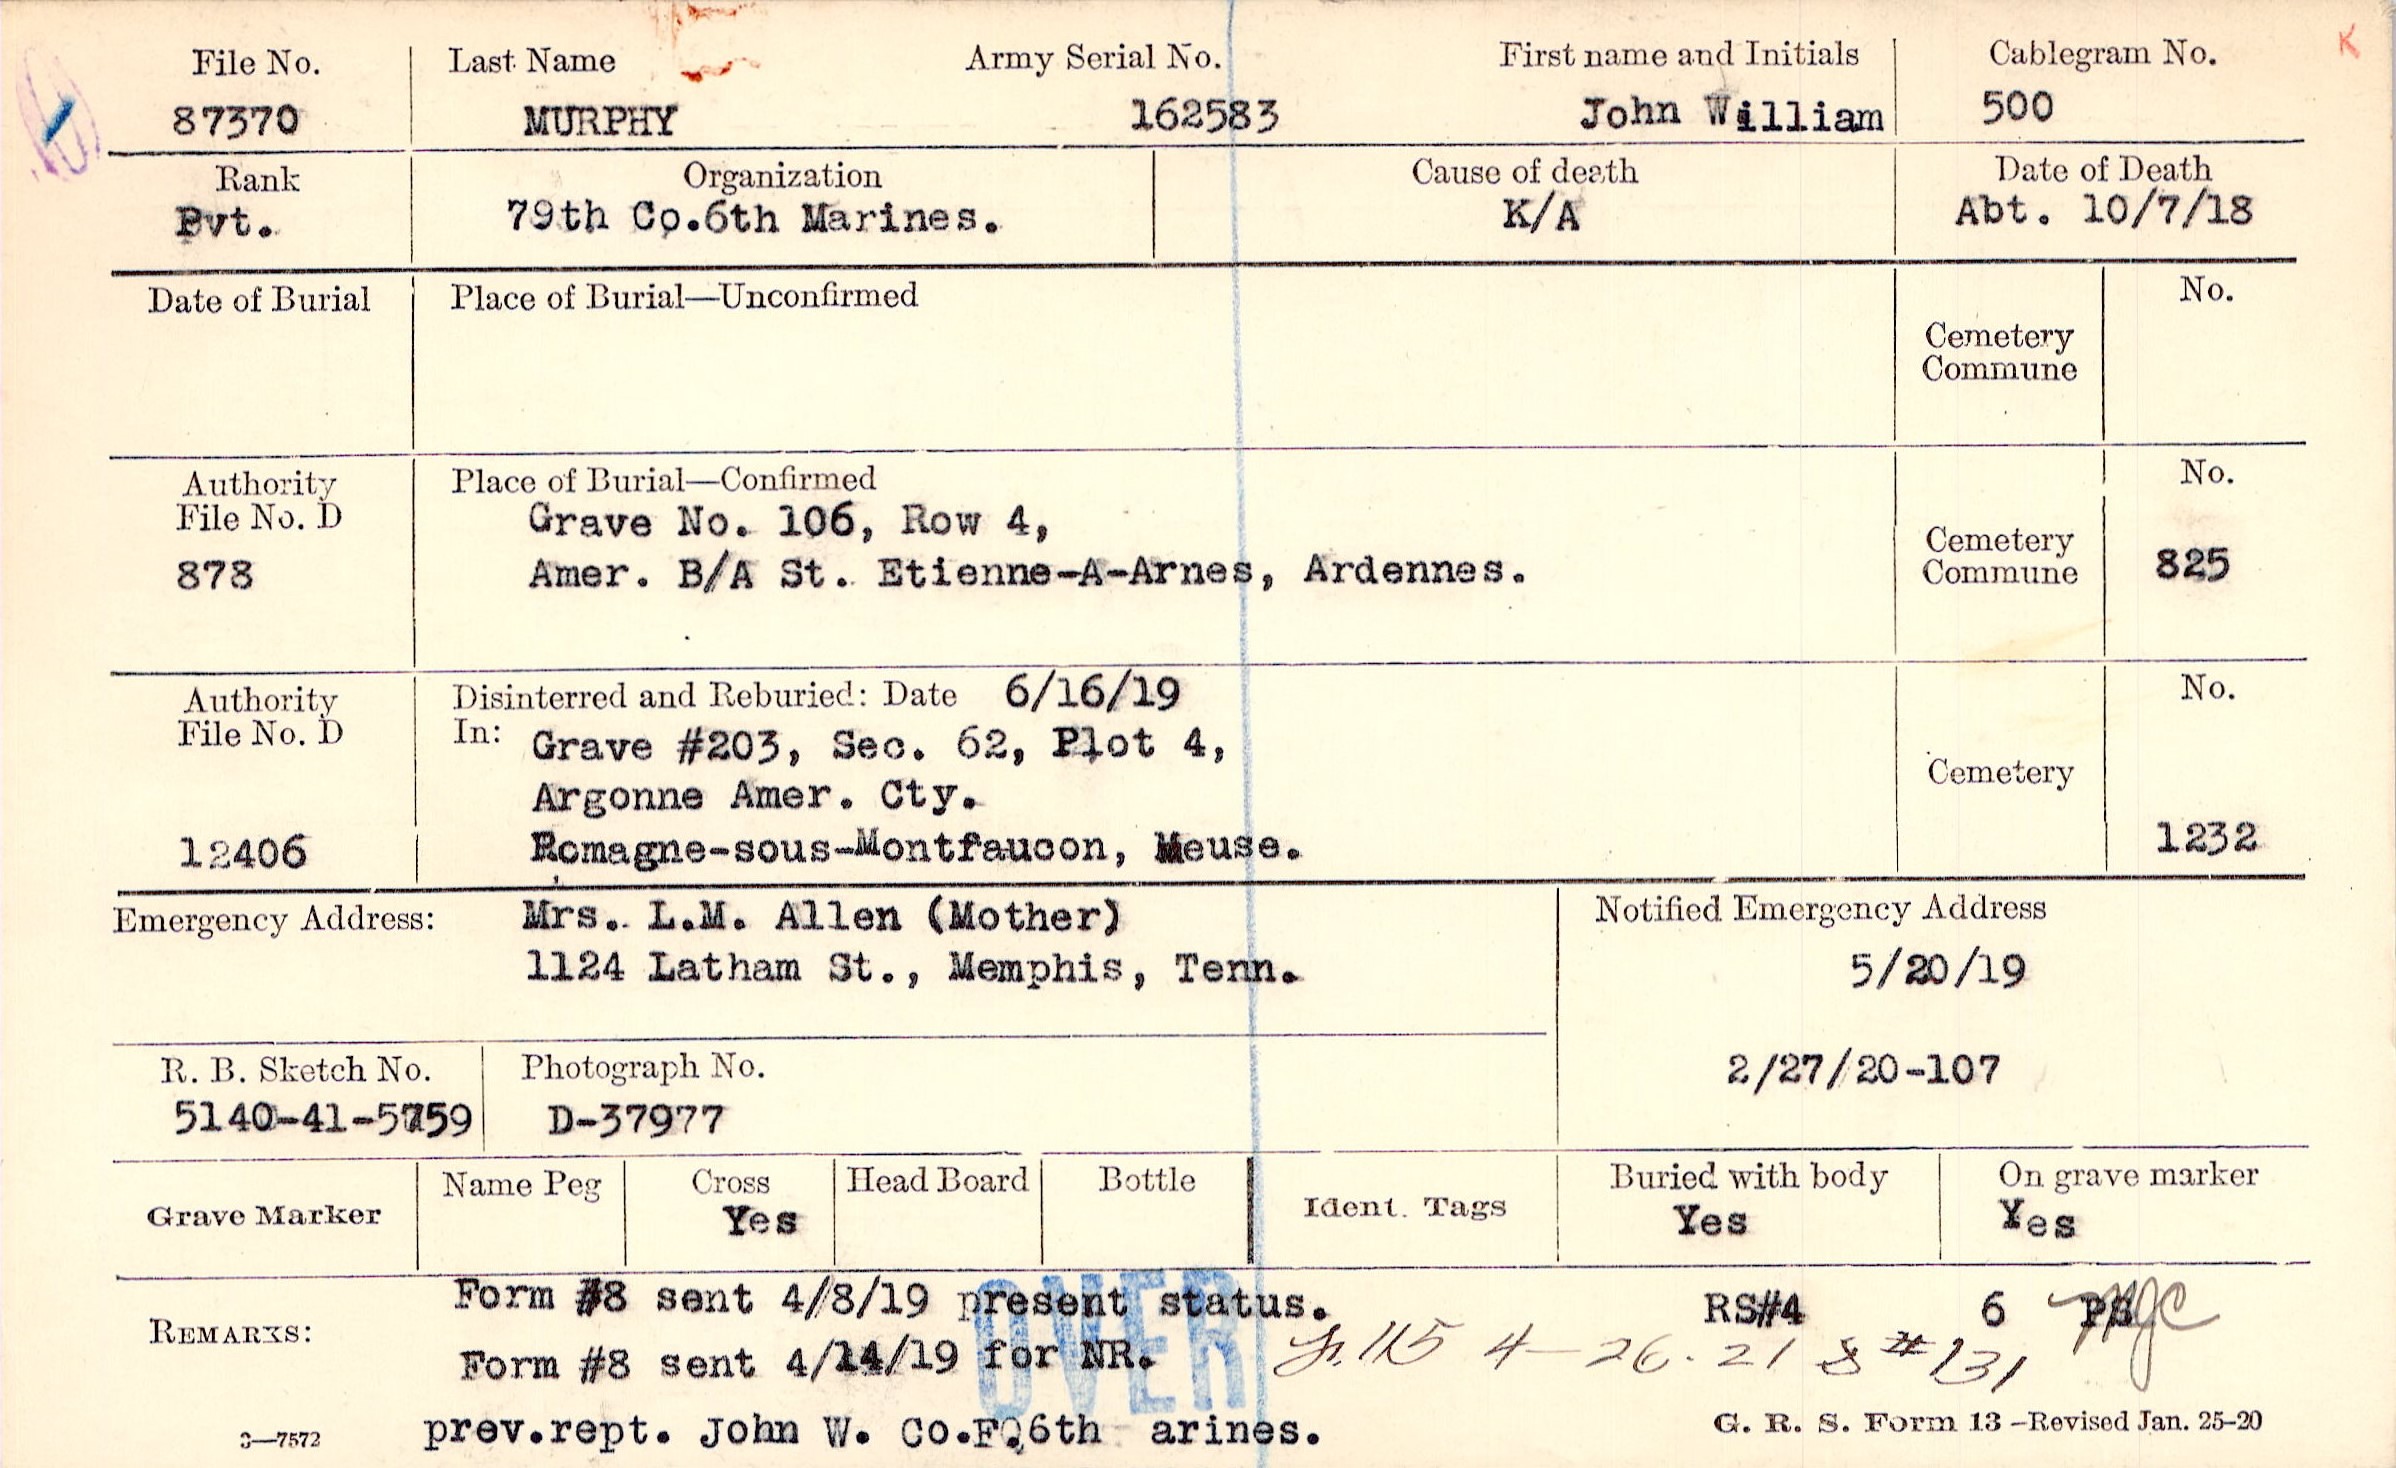 File No. Last Name Army Serial No. First name and Initials Cablegram No. K
87370 MURPHY 162583 John William 500
Rank Organization Cause of death Date of Death
Pvt. 79th Co.6th Marines. K/A Abt. 10/7/18
Date of Burial Place of Burial—Unconfirmed No.
Cemetery
Commune
Authority Place of Burial—Confirmed No.
File No. D Grave No. 106, Row 4, Cemetery
878 Amer. B/A St. Etienne-A-Arnes, Ardennes. Commune 825
Authority Disinterred and Reburied: Date 6/16/19 No.
File No. D In: Grave #203, Sec. 62, Plot 4,
Argonne Amer. Cty. Cemetery
12406 Romagne-sous-Montfaucon, Meuse. 1232
Emergency Address: Mrs. L.M. Allen (Mother) Notified Emergency Address
1124 Latham St., Memphis, Tenn. 5/20/19
R. B. Sketch No. Photograph No. 2/27/20-107
5140-41-5759 D-37977
Grave Marker Name Peg Cross Head Board Bottle Ident. Tags Buried with body On grave marker
Yes Yes Yes
Form #8 sent 4/8/19 present status. RS#4 6 PS MJC
REMARKS:
Form #8 sent 4/14/19 for NR. 115 4-26-21 #131
OVER
prev.rept. John W. Co.F 6th arines.
3—7572 G. R. S. Form 13 —Revised Jan. 25-20